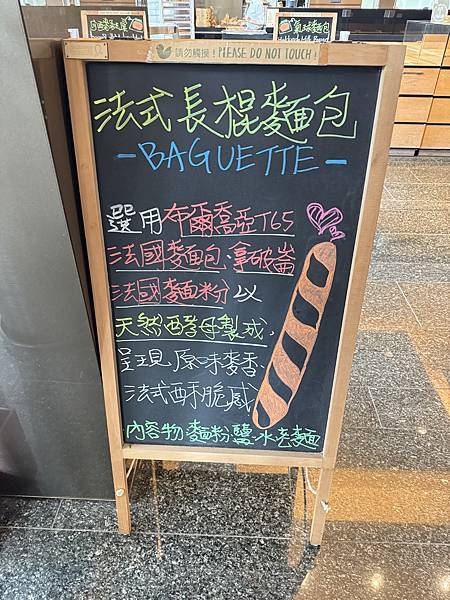 請勿觸摸!PLEASE DO NOT TOUCH!
法式長棍麵包
-BAGUETTE-
選用布爾喬亞T65
法國麵包、拿破崙
法國麵粉以
天然酵母製成,
呈現原味麥香、
法式酥脆感
內容物:麵粉.鹽.水.老麵